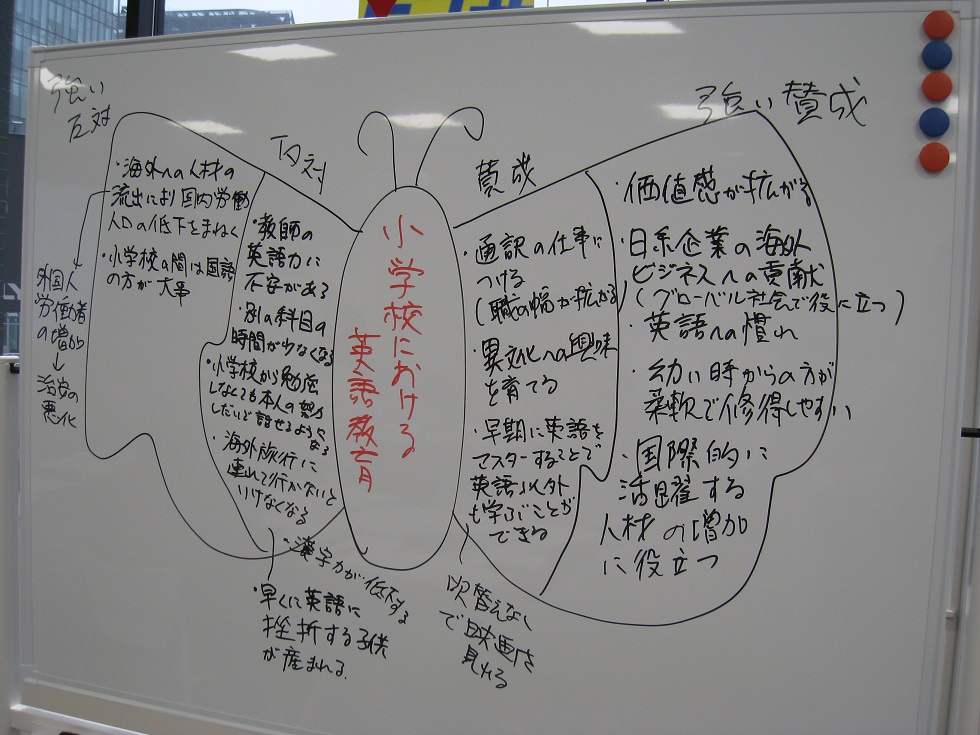 強い
反対
・海外への人材の
流出により国内労働
人口の低下をまねく
・小学校の間は国語
の方が大事
外国人
労働者
の増加
↓
治安の
悪化
反対
・教師の
英語力に
不安がある
・別の科目の
時間が少なくなる
・小学校から勉強
しなくても本人の努力
しだいで話せるように
なる
・海外旅行に
連れて行かないと
いけなくなる
・漢字力が低下する
・早くに英語に
挫折する子供
が産まれる.
小学校における
英語教育
賛成
・通訳の仕事に
つける
(職の幅が拡がる)
・異文化への興味
を育てる
・早期に英語を
マスターすることで
英語以外
も学ぶことが
できる
吹替えなし
で映画を
見れる
強い賛成
・価値感が拡がる
・日系企業の海外
ビジネスへの貢献
(グローバル社会で役に立つ)
・英語への慣れ
・幼い時からの方が
柔軟で修得しやすい
・国際的に
活躍する
人材の増加
に役立つ